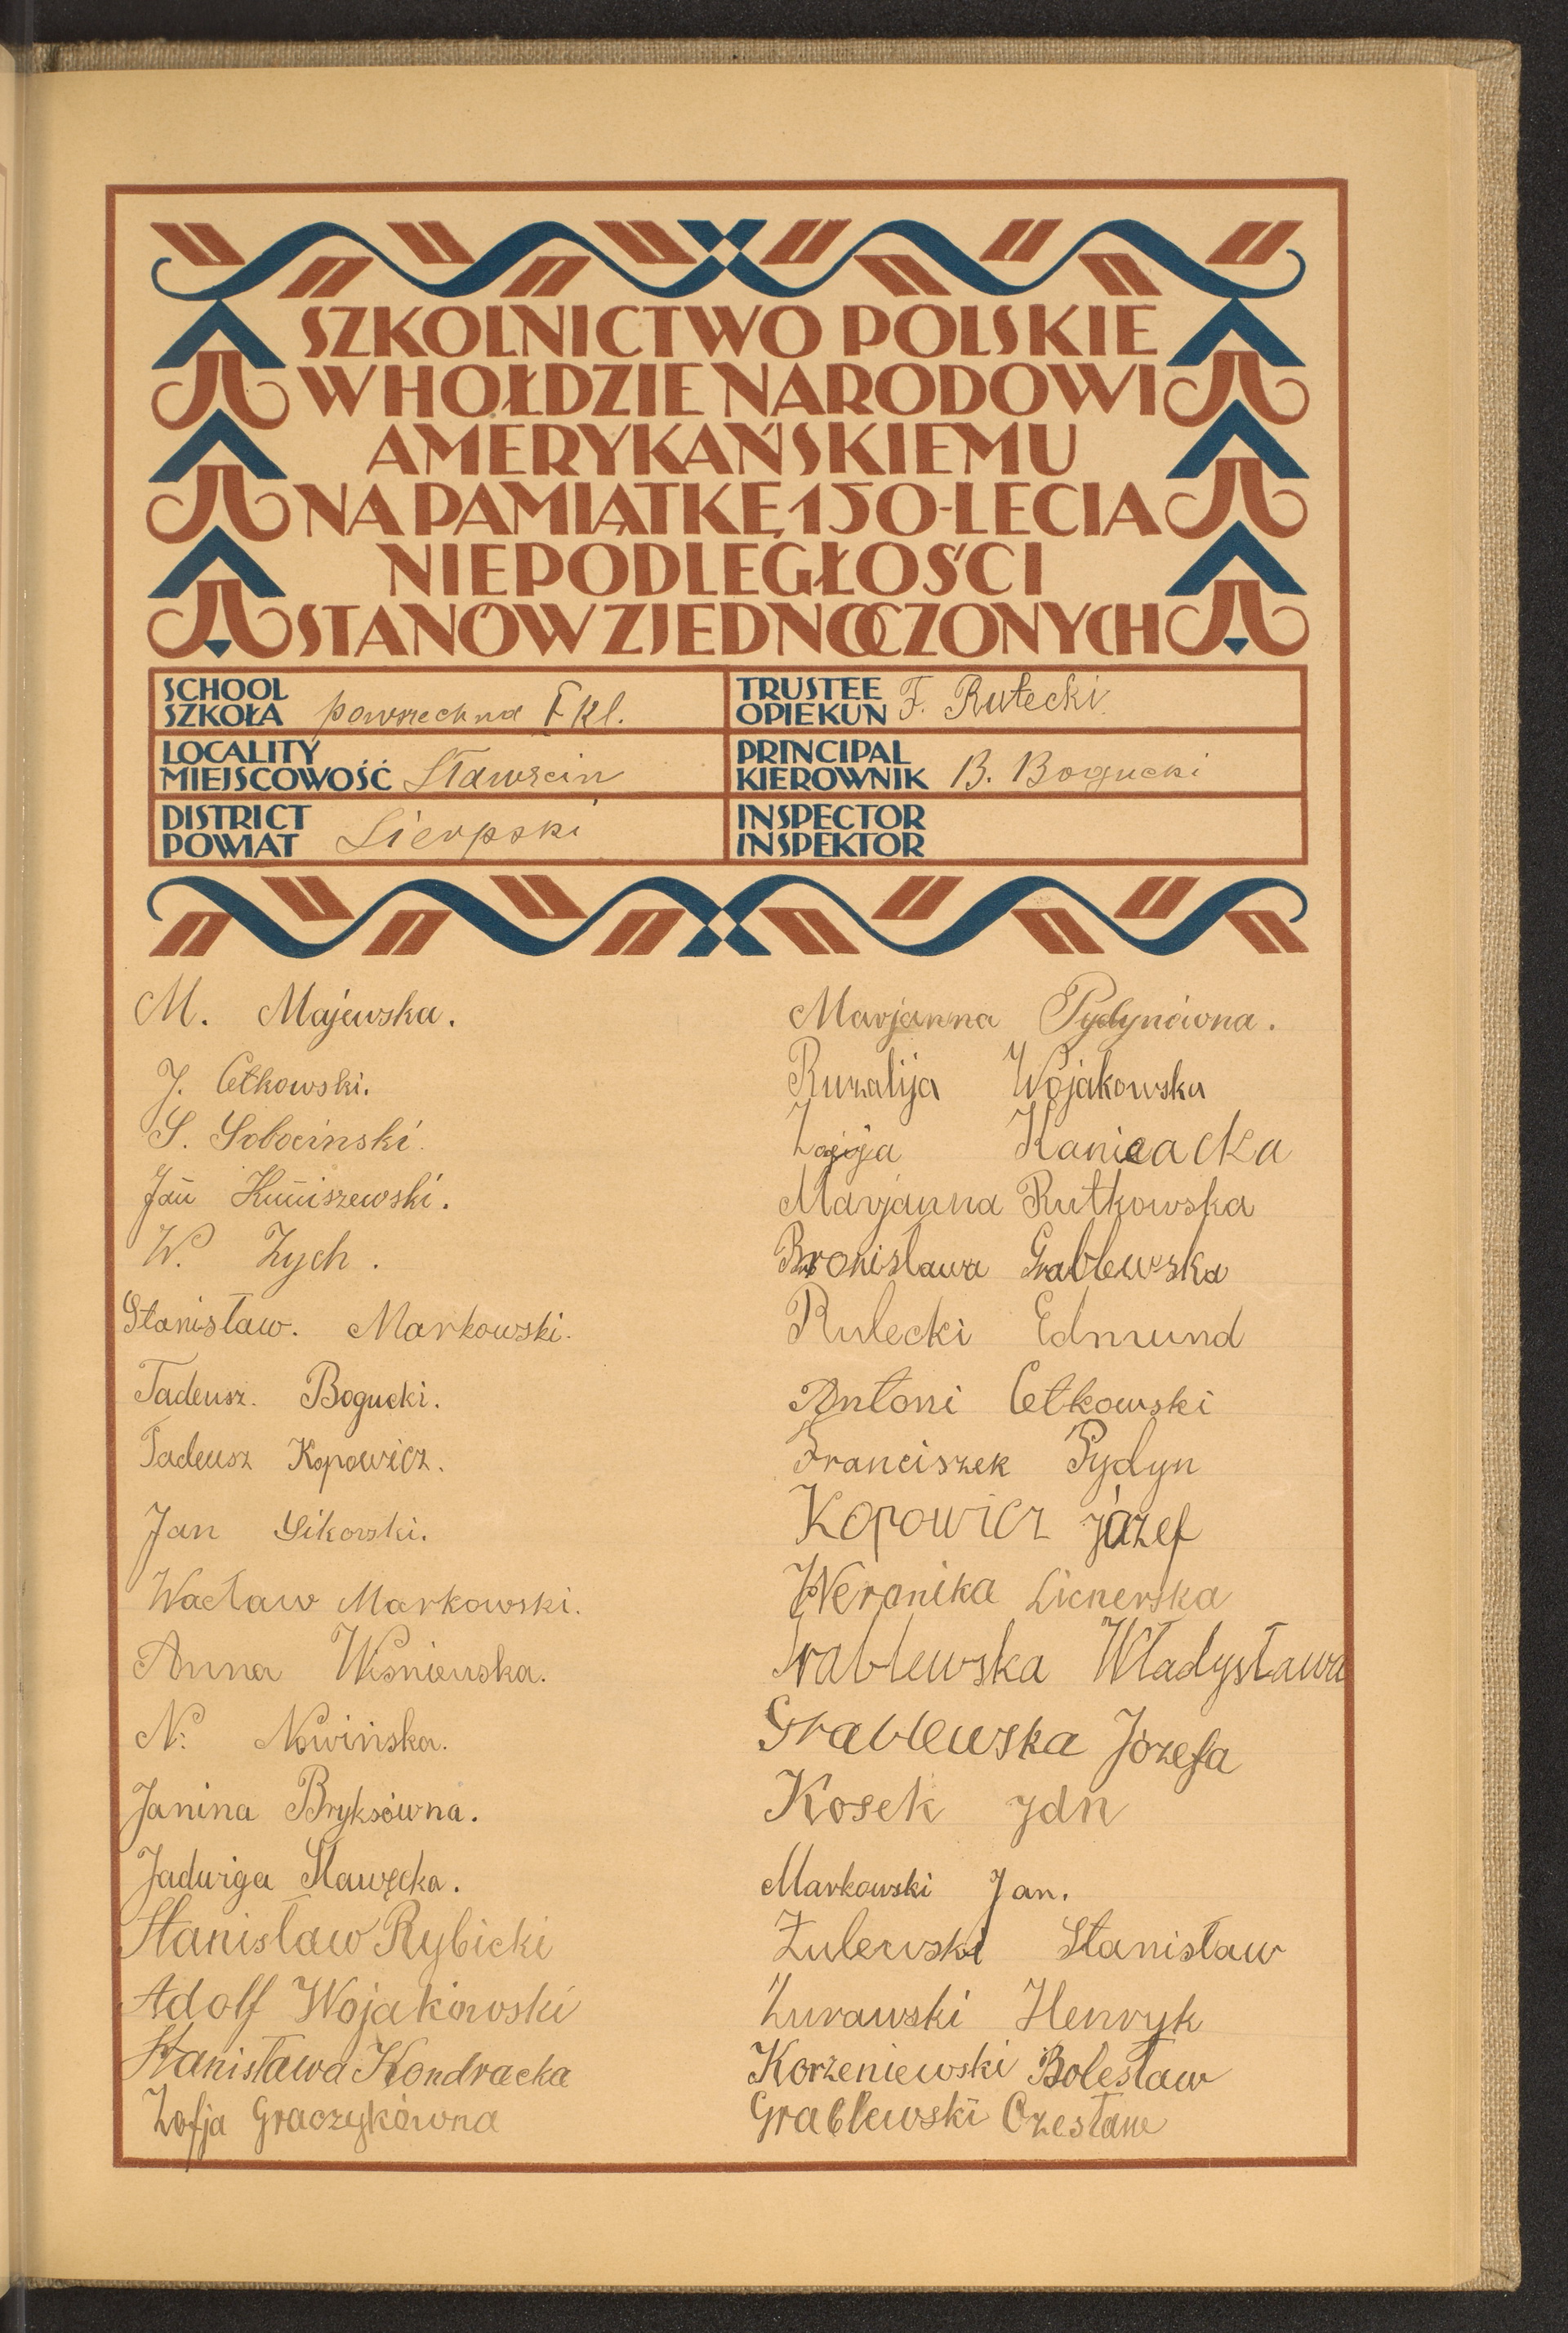 SZKOLNICTWO POLSKIE
W HOŁDZIE NARODOWI
AMERYKAŃSKIEMU
NA PAMIĄTKĘ 150-LECIA
NIEPODLEGŁOŚCI
STANÓW ZJEDNOCZONYCH
SCHOOL
SZKOŁA powszechna I kl.
TRUSTEE
OPIEKUN F. Rutecki
LOCALITY
MIEJSCOWOŚĆ Sławęcin
PRINCIPAL
KIEROWNIK B. Bogucki
DISTRICT
POWIAT Sierpski
INSPECTOR
INSPEKTOR
M. Majewska.
J. Cetkowski.
S. Sobociński.
Jan Kuniszewski.
W. Zych.
Stanisław. Markowski.
Tadeusz. Bogucki.
Tadeusz Kopowicz.
Jan Sikorski.
Wacław Markowski.
Anna Wiśniewska.
N. Nowińska.
Janina Bryksówna.
Jadwiga Sławęcka.
Stanisław Rybicki
Adolf Wojakowski
Stanisława Kondracka
Zofja Graczykówna
Marjanna Pydynówna.
Ruzalija Wojakowska
Marjanna Rutkowska
Bronisława Grablewska
Rulecki Edmund
Antoni Cetkowski
Franciszek Pydyn
Kopowicz józef
Weranika Licnerska
Grablewska Władysława
Grablewska Józefa
Kosek Jan
Markowski Jan.
Żulewski Stanisław
Żurawski Henryk
Korzeniewski Bolesław
Grablewski Czesław